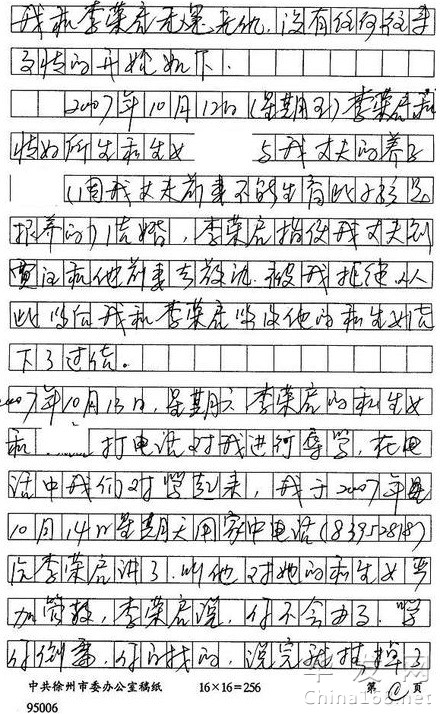 我和李荣启无冤无仇，没有任何往来
事情的开始如下．
2007年10月12日（星期五）李荣启和
情妇所生私生女 与我丈夫的养子
（因我丈夫前妻不能生育此子是
抱养的）结婚，李荣启指使我丈夫到
贾汪和他前妻去 被我拒绝．从
此以后我和李荣启以及他的私生女结
下了过结。
2007年10月13日，星期六李荣启的私生女
和…… 打电话对我进行辱骂，在电
话中我们对骂起来，我于2007年
10月14日星期天用家中电话（83952818）
向李荣启讲了．叫他对她的私生女严
加管教，李荣启说，你不会办了．骂
你 ，你 的，说完就挂掉了
中共徐州市委办公室稿纸 16×16=256 第 1 页
95006
华发网
China168.net